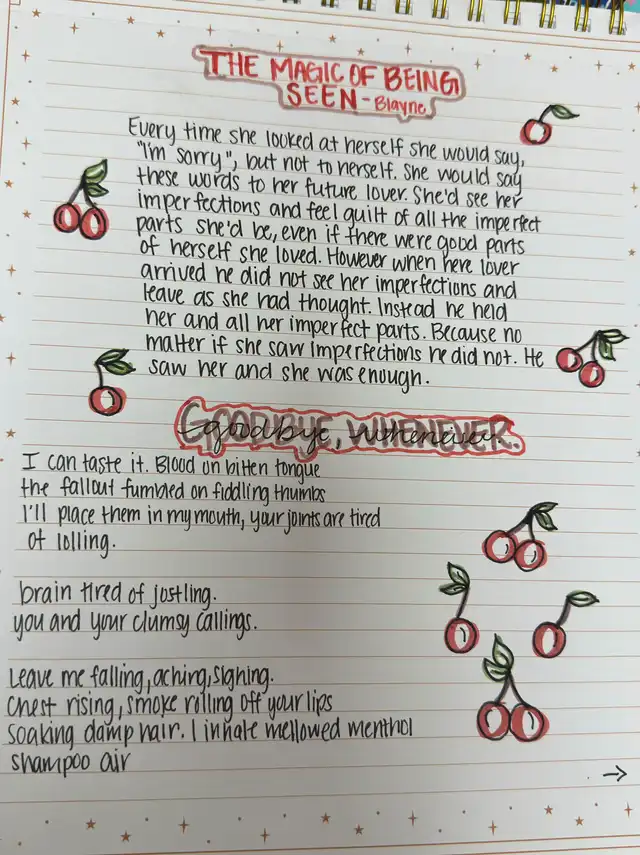 THE MAGIC OF BEING
SEEN - Blayne
Every time she looked at herself she would say,
"I'm sorry", but not to herself. She would say
these words to her future lover. She'd see her
imperfections and feel guilt of all the imperfect
parts she'd be, even if there were good parts
of herself she loved. However when here lover
arrived he did not see her imperfections and
leave as she had thought. Instead he held
her and all her imperfect parts. Because no
matter if she saw imperfections he did not. He
saw her and she was enough.
GOODBYE, WHENEVER.
goodbye, whenever.
I can taste it. Blood on bitten tongue
the fallout fumbled on fiddling thumbs
I'll place them in my mouth, your joints are tired
of lolling.
brain tired of jostling.
you and your clumsy callings.
Leave me falling, aching, sighing.
Chest rising, smoke rolling off your lips
soaking damp hair. I inhale mellowed menthol
shampoo air
→